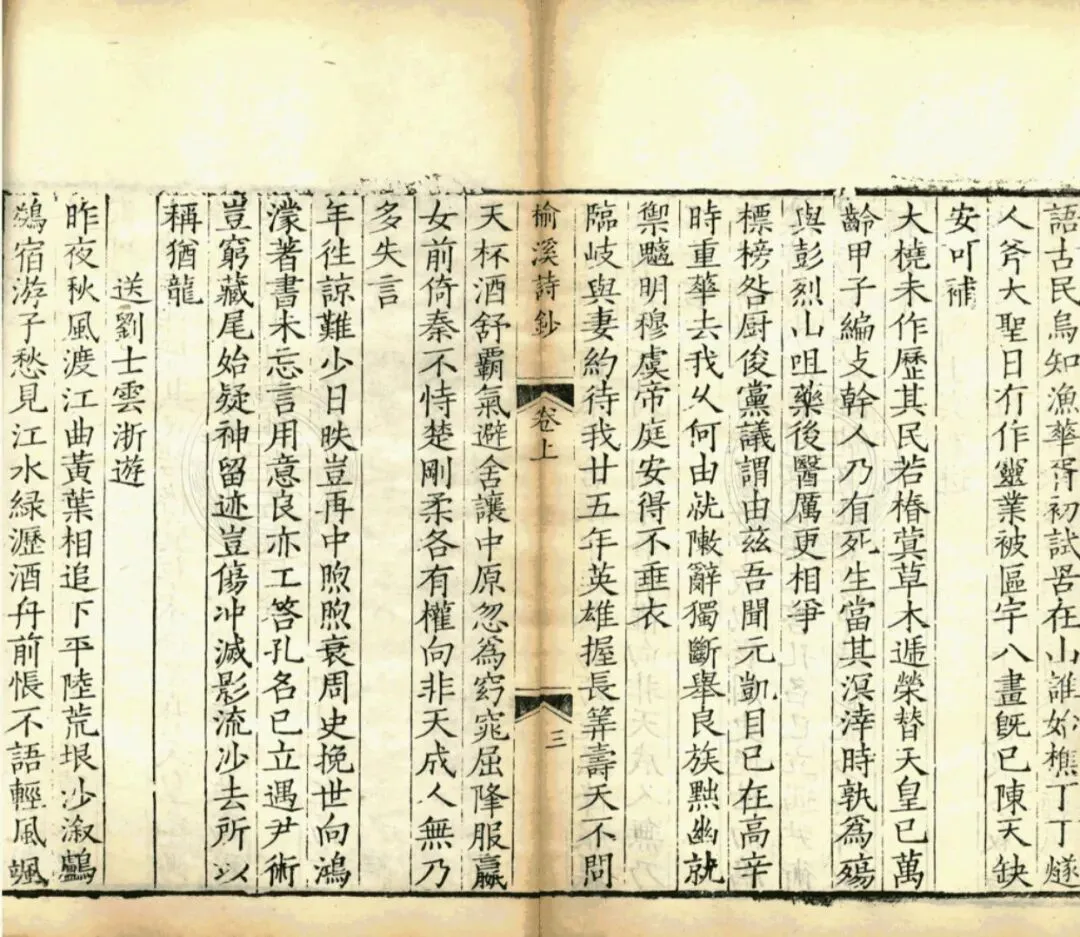 語古民烏知漁華胥初試罟在山誰始樵丁丁燧
人斧大聖日有作靈業被區宇八畫旣已陳天缺
安可補
大橈未作歷其民若椿蓂草木遞榮替天皇已萬
齡甲子編攴幹人乃有死生當其溟涬時孰爲殤
與彭烈山咀藥後醫厲更相爭
標榜咎厨俊黨議謂由兹吾聞元凱目已在高辛
時重華去我久何由泚敶辭獨斷舉良族黜幽就
禦魑明穆虞帝庭安得不垂衣
臨岐與妻約待我廿五年英雄握長筭壽夭不問
榆溪詩鈔
卷上
三
天杯酒舒霸氣避舍讓中原忽爲窈窕屈隆服嬴
女前倚秦不恃楚剛柔各有權向非天成人無乃
多失言
年徃諒難少日昳豈再中煦煦衰周史挽世向鴻
濛著書未忘言用意良亦工答孔名已立遇尹術
豈窮藏尾始疑神留迹豈傷冲滅影流沙去所以
稱猶龍
送劉士雲浙遊
昨夜秋風渡江曲黃葉相追下平陸荒垠沙溆鸕
鷀宿游子愁見江水綠瀝酒舟前悵不語輕風颯